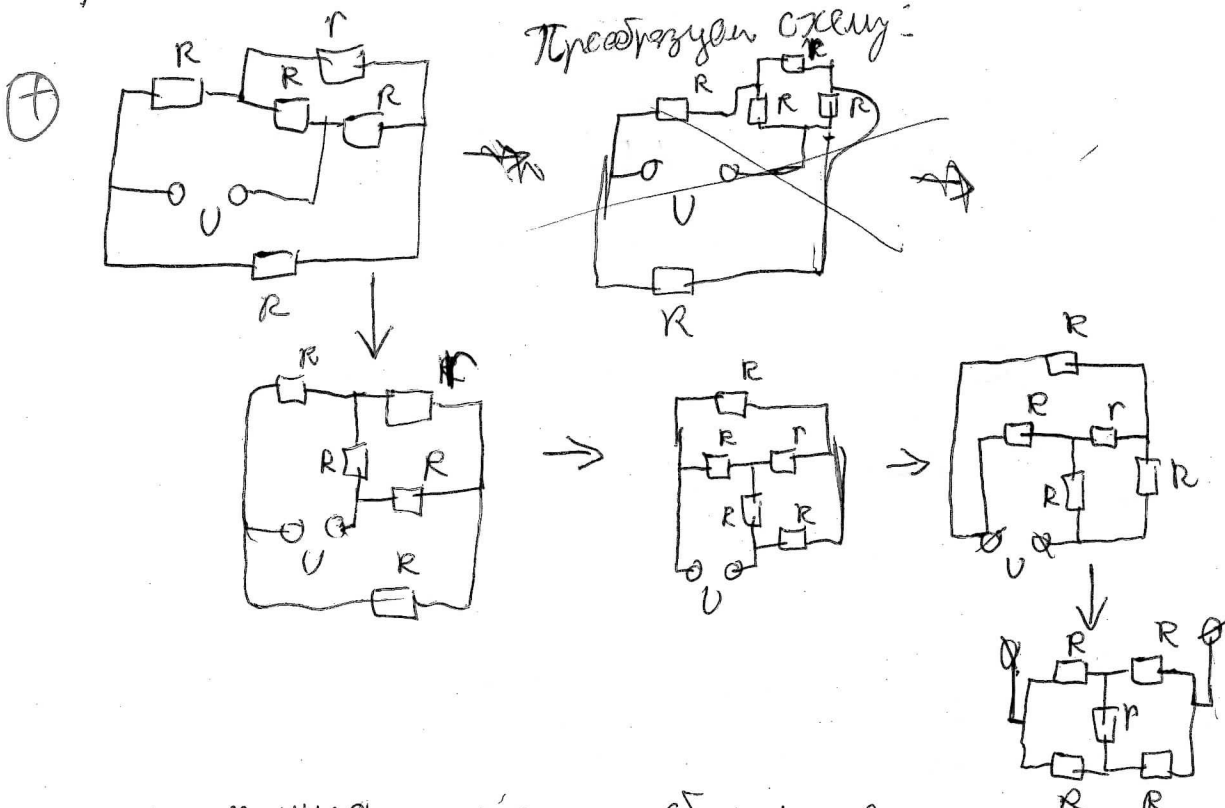 Преобразуем схему:
r
R
R
R
U
R
R
R
R
R
U
R
R
r
R
R
U
R
R
R
r
R
R
U
R
R
r
R
R
U
R
R
r
R
R